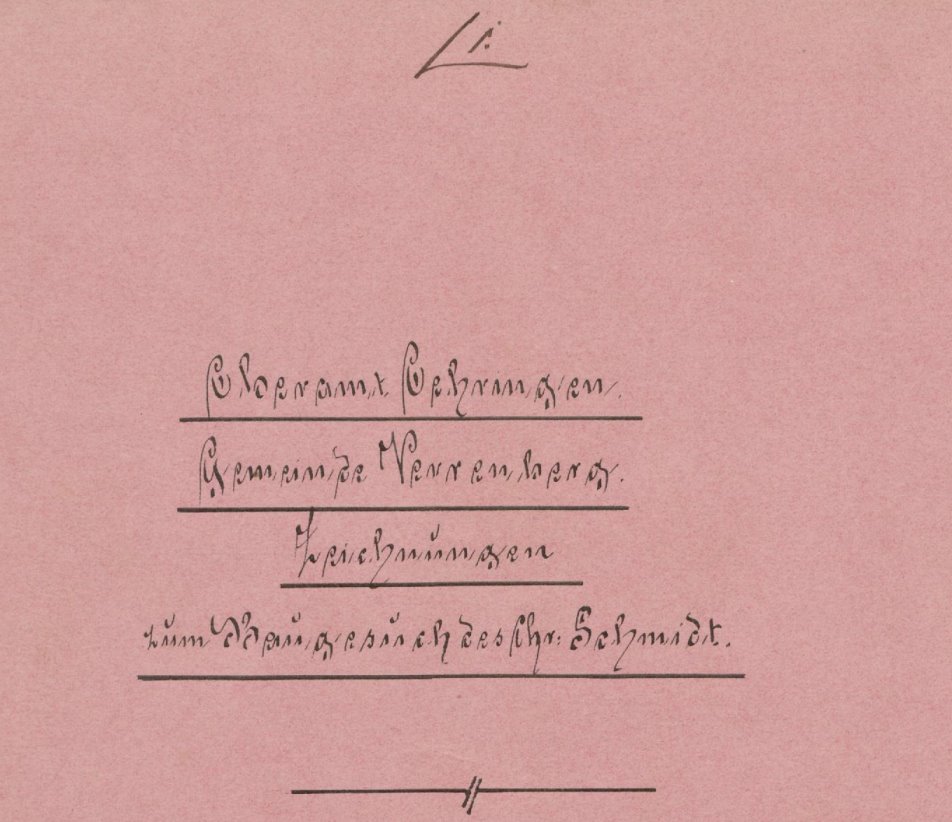 1.
Oberamt Oehringen.
Gemeinde Verrenberg.
Zeichnungen
zum Baugesuch des Chr: Schmidt.